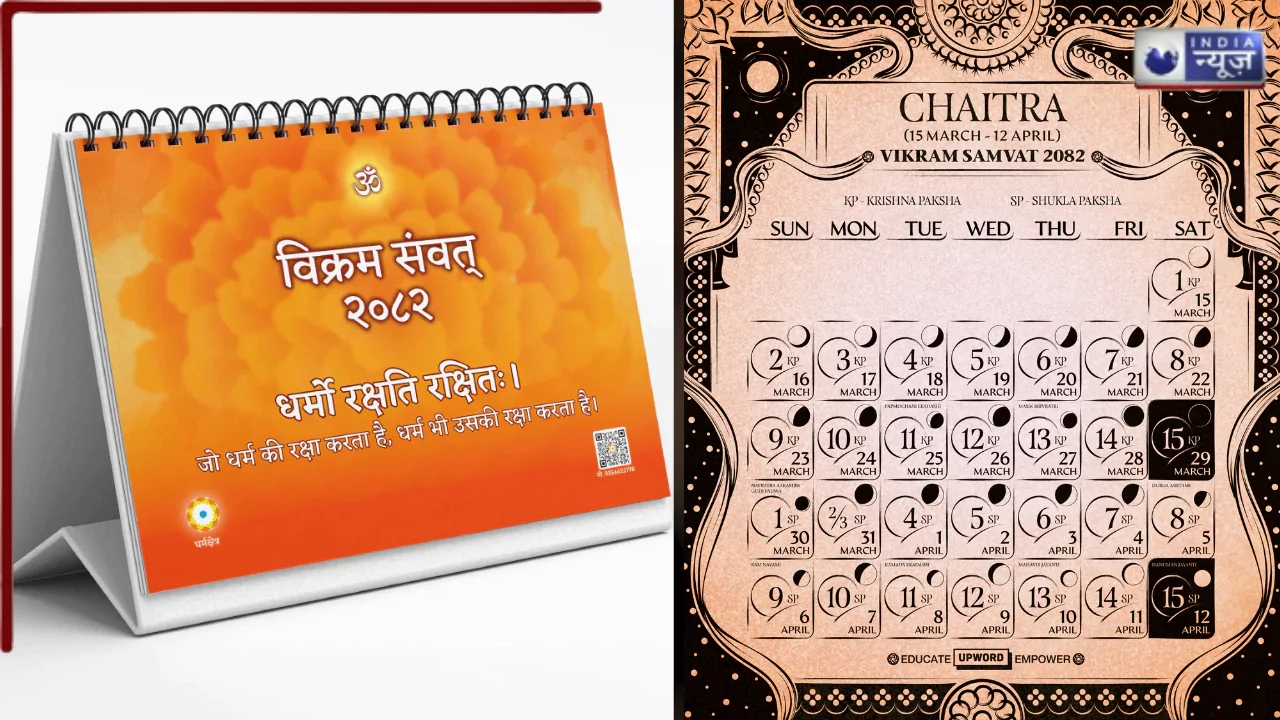 ॐ
विक्रम संवत्
२०८२
धर्मो रक्षति रक्षितः।
जो धर्म की रक्षा करता है, धर्म भी उसकी रक्षा करता है।
धर्मक्षेत्र
INDIA
न्यूज़
CHAITRA
(15 MARCH - 12 APRIL)
VIKRAM SAMVAT 2082
KP - KRISHNA PAKSHA SP - SHUKLA PAKSHA
SUN MON TUE WED THU FRI SAT
1 KP
15
MARCH
2 KP 3 KP 4 KP 5 KP 6 KP 7 KP 8 KP
16 17 18 19 20 21 22
MARCH MARCH MARCH MARCH MARCH MARCH MARCH
PAPMOCHANI EKADASHI MASIK SHIVRATRI
9 KP 10 KP 11 KP 12 KP 13 KP 14 KP 15 KP
23 24 25 26 27 28 29
MARCH MARCH MARCH MARCH MARCH MARCH MARCH
NAVRATRA AARAMBH DURGA ASHTAMI
GUDI PADWA
1 SP 2/3 SP 4 SP 5 SP 6 SP 7 SP 8 SP
30 31 1 2 3 4 5
MARCH MARCH APRIL APRIL APRIL APRIL APRIL
RAM NAVAMI KAMADA EKADASHI MAHAVIR JAYANTI HANUMAN JAYANTI
9 SP 10 SP 11 SP 12 SP 13 SP 14 SP 15 SP
6 7 8 9 10 11 12
APRIL APRIL APRIL APRIL APRIL APRIL APRIL
EDUCATE UPWORD EMPOWER